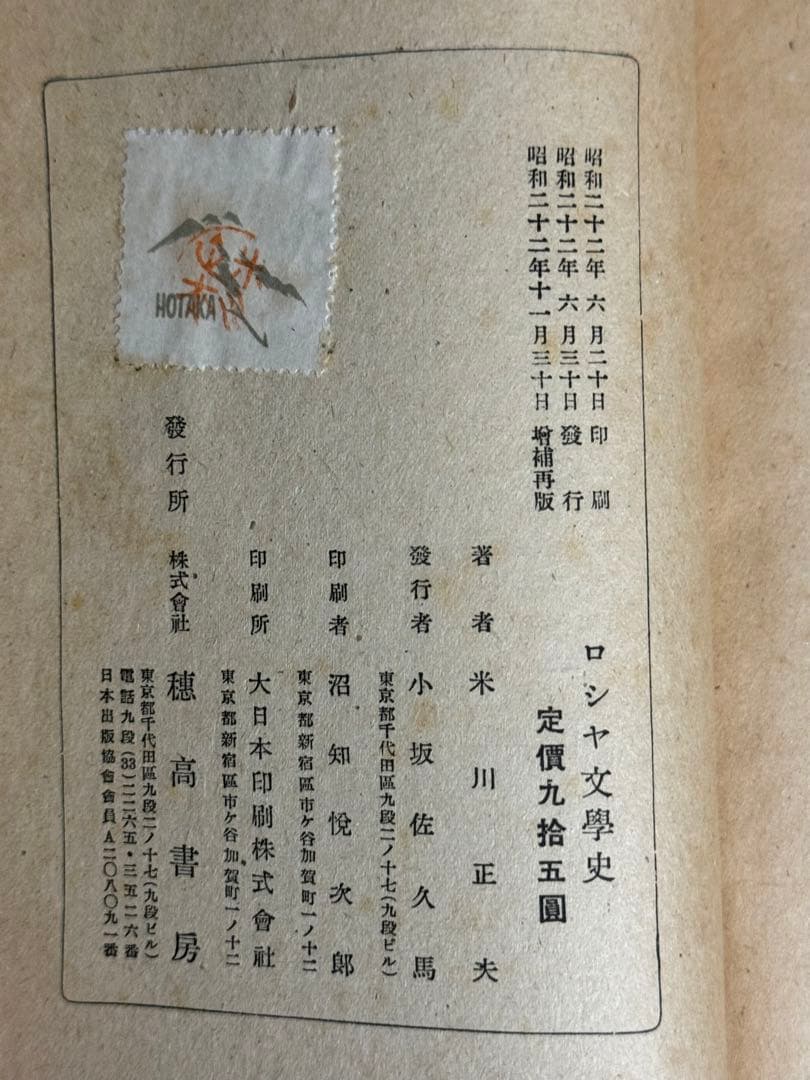 昭和二十二年 六月二十日 印刷
昭和二十二年 六月三十日 發行
昭和二十二年十一月三十日 增補再版
ロシヤ文學史
定價九拾五圓
著者 米川正夫
發行者 小坂佐久馬
東京都千代田區九段二ノ十七(九段ビル)
印刷者 沼知悅次郎
東京都新宿區市ケ谷加賀町一ノ十二
印刷所 大日本印刷株式會社
東京都新宿區市ケ谷加賀町一ノ十二
發行所 株式會社 穗高書房
東京都千代田區九段二ノ十七(九段ビル)
電話九段(33)二二六五・三五二六番
日本出版協會會員A二〇八〇九一番
HOTAKA